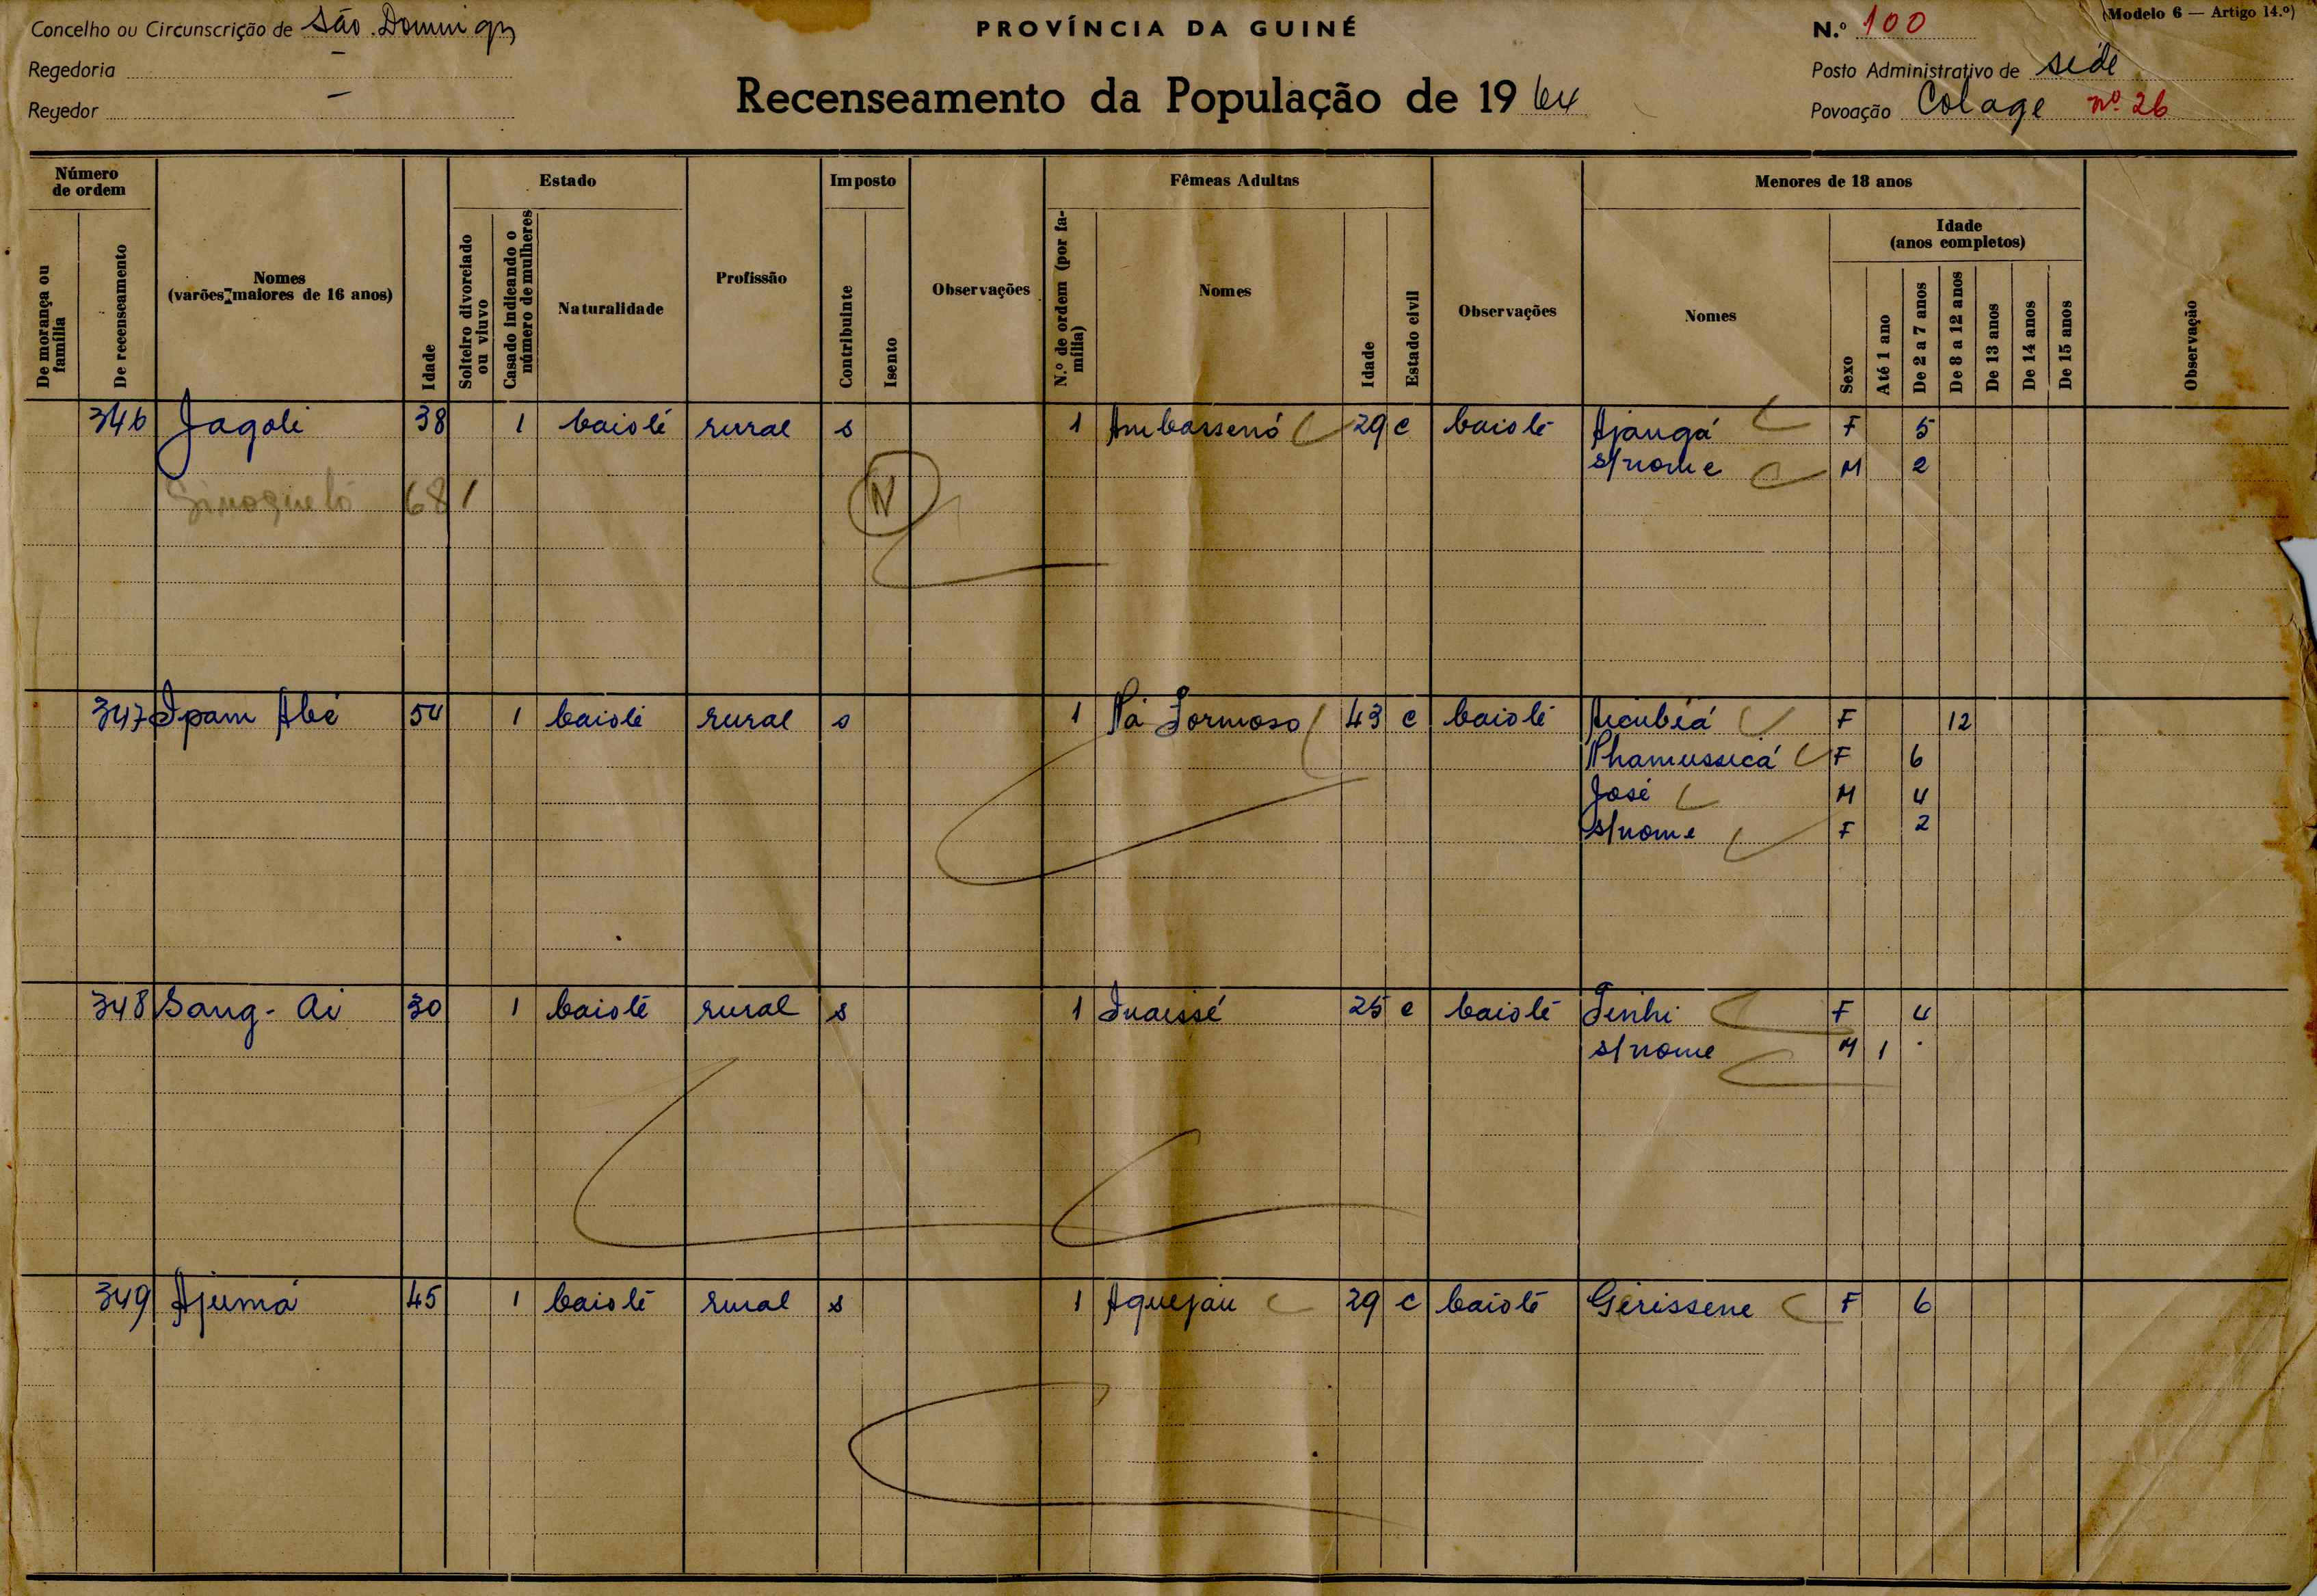 (Modelo 6 — Artigo 14.º)
Concelho ou Circunscrição de São Domingos
PROVÍNCIA DA GUINÉ
N.º 100
Regedoria —
Posto Administrativo de sede
Regedor —
Recenseamento da População de 1964
Povoação Colage nº 26
Número de ordem
De morança ou família
De recenseamento
Nomes (varões maiores de 16 anos)
Idade
Estado
Solteiro divorciado ou viuvo
Casado indicando o número de mulheres
Naturalidade
Profissão
Imposto
Contribuinte
Isento
Observações
Fêmeas Adultas
N.º de ordem (por família)
Nomes
Idade
Estado civil
Observações
Menores de 18 anos
Nomes
Sexo
Idade (anos completos)
Até 1 ano
De 2 a 7 anos
De 8 a 12 anos
De 13 anos
De 14 anos
De 15 anos
Observação
346 Jagoli 38 1 baiolé rural s 1 Ambassenó 29 c baiolé Ajangá F 5
s/nome M 2
68 1 N
347 Ipam Abé 54 1 baiolé rural s 1 Na Formoso 43 c baiolé F 12
Nhamussucá F 6
José M 4
s/nome F 2
348 Sang-Ai 30 1 baiolé rural s 1 25 c baiolé Tinhi F 4
s/nome M 1
349 Ajumá 45 1 baiolé rural s 1 Aquejau 29 c baiolé Gerissene F 6